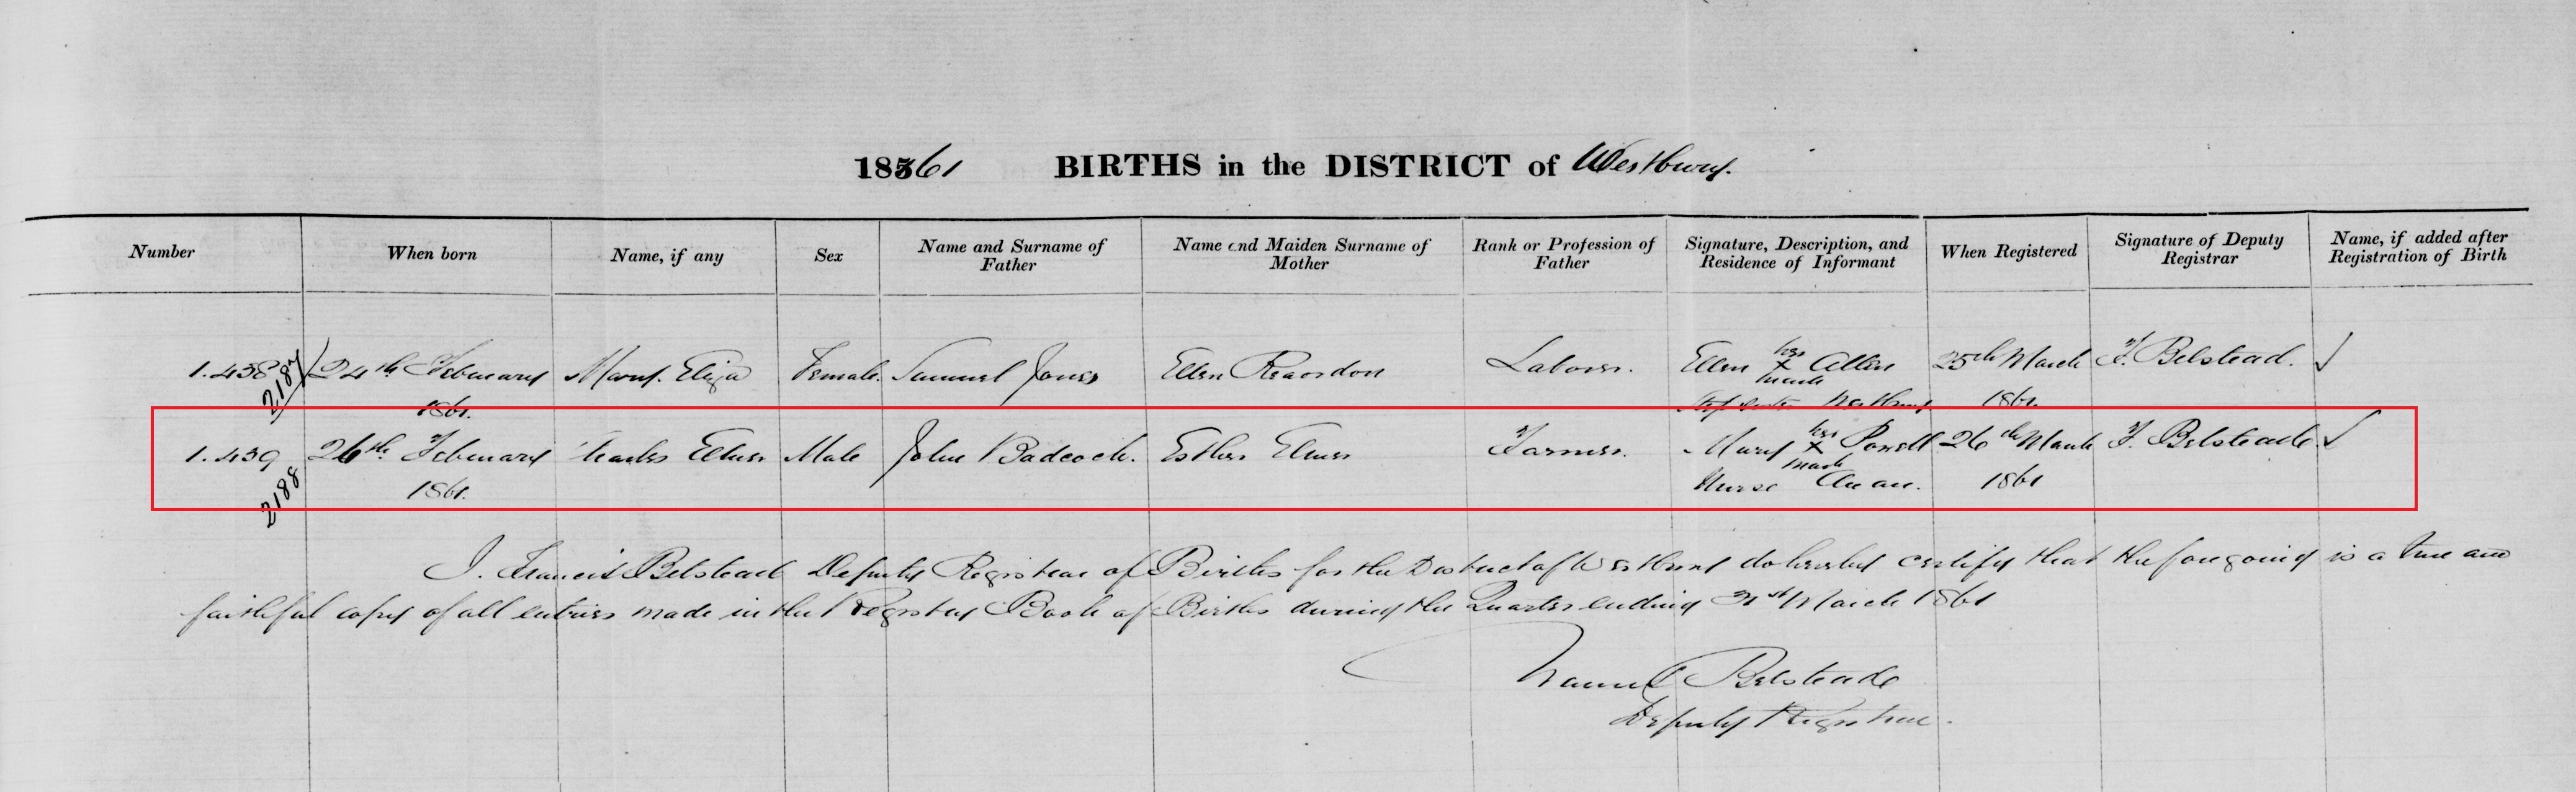 1861 BIRTHS in the DISTRICT of Westbury.
Number When born Name, if any Sex Name and Surname of Father Name and Maiden Surname of Mother Rank or Profession of Father Signature, Description, and Residence of Informant When Registered Signature of Deputy Registrar Name, if added after Registration of Birth
1.438 2187 24th February 1861. Mary Eliza Female. Samuel Jones Ellen Reardon Labourer. Ellen her X mark Allen Westbury 25th March 1861. F. Belstead. ✓
1.439 2188 26th February 1861. Charles Elmer Male John Badcock. Esther Elmer Farmer. Mary her X mark Powell Nurse 26th March 1861 F. Belstead ✓
I. Francis Belstead Deputy Registrar of Births for the District of Westbury do hereby certify that the foregoing is a true and
faithful copy of all entries made in the Registry Book of Births during the Quarter ending 31st March 1861
Francis Belstead
Deputy Registrar.